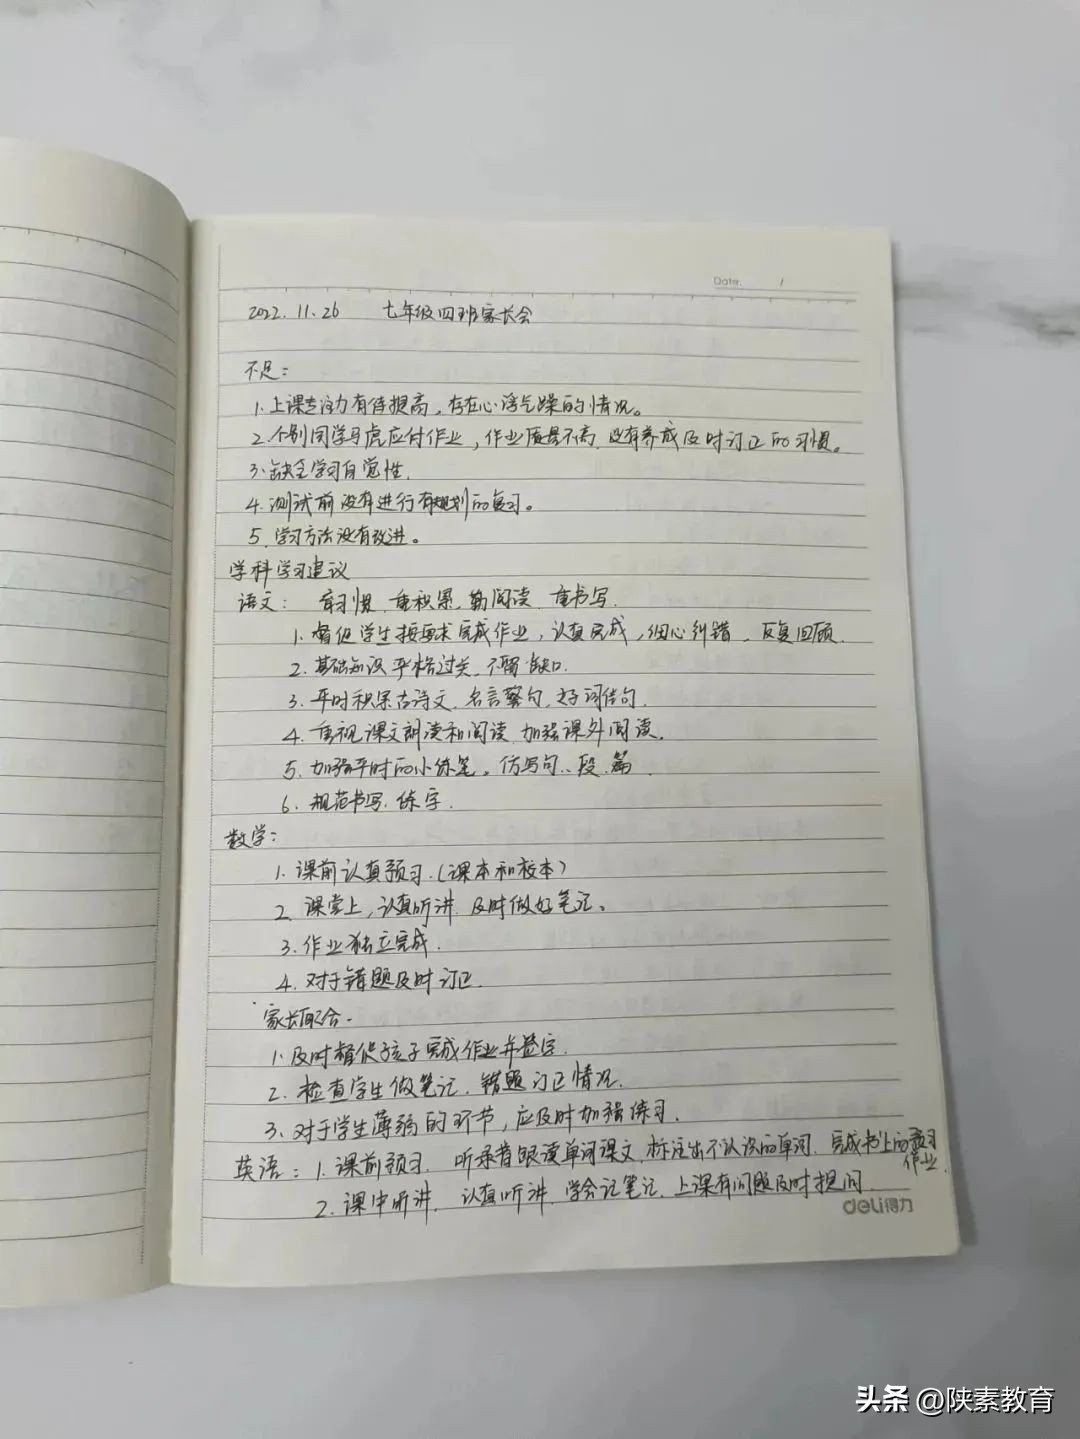 Date.    /
2022.11.26 七年级四班家长会
不足：
1.上课专注力有待提高，存在心浮气躁的情况。
2.个别同学马虎应付作业，作业质量不高 没有养成及时订正的习惯。
3.缺乏学习自觉性.
4.测试前没有进行有规划的复习。
5.学习方法没有改进。
学科学习建议
语文： 育习惯.重积累.勤阅读.重书写.
1.督促学生按要求完成作业，认真完成，细心纠错.反复回顾.
2.基础知识严格过关.不留缺口.
3.平时积累古诗文.名言警句.好词佳句.
4.重视课文朗读和阅读.加强课外阅读.
5.加强平时的小练笔。仿写句、段.篇.
6.规范书写.练字.
数学：
1.课前认真预习.(课本和校本)
2.课堂上，认真听讲.及时做好笔记。
3.作业独立完成.
4.对于错题及时订正.
家长配合.
1.及时督促孩子完成作业并签字.
2.检查学生做笔记.错题订正情况.
3.对于学生薄弱的环节，应及时加强练习.
英语：1.课前预习.听录音跟读单词课文.标注出不认识的单词.完成书上的预习
作业.
2.课中听讲.认真听讲.学会记笔记.上课有问题及时提问.
deli得力
头条 @陕素教育